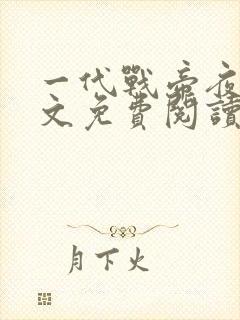 一代戰帝夜
文免費閱讀
月下火